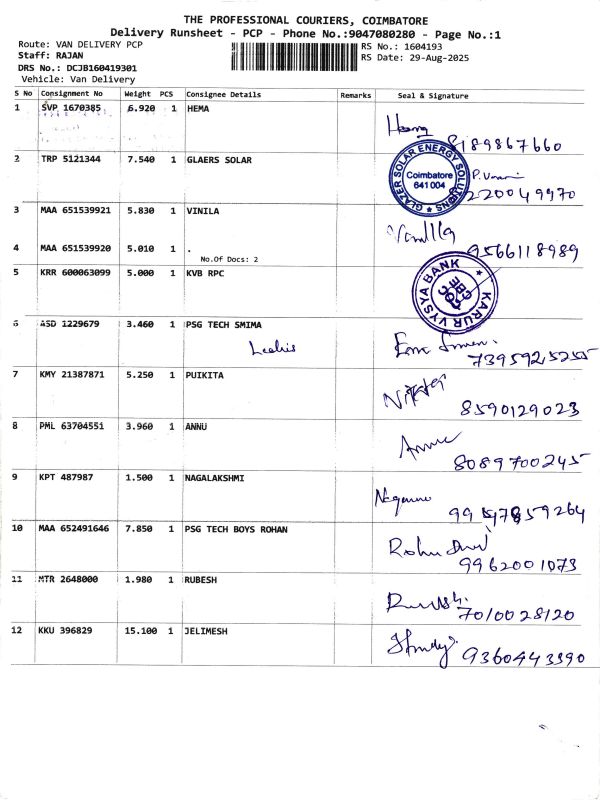 THE PROFESSIONAL COURIERS, COIMBATORE
Delivery Runsheet - PCP - Phone No.:9047080280 - Page No.:1
Route: VAN DELIVERY PCP
Staff: RAJAN
DRS No.: DCJB160419301
Vehicle: Van Delivery
RS No.: 1604193
RS Date: 29-Aug-2025
S No Consignment No Weight PCS Consignee Details Remarks Seal & Signature
1 SVP 1670385 6.920 1 HEMA
8189867660
2 TRP 5121344 7.540 1 GLAERS SOLAR
GLAZER SOLAR ENERGY SOLUTIONS
Coimbatore
641 004
220049970
3 MAA 651539921 5.830 1 VINILA
Vanilla
4 MAA 651539920 5.010 1 .
No.Of Docs: 2
9566118989
5 KRR 600063099 5.000 1 KVB RPC
KARUR VYSYA BANK
6 ASD 1229679 3.460 1 PSG TECH SMIMA
7395925255
7 KMY 21387871 5.250 1 PUIKITA
8590129023
8 PML 63704551 3.960 1 ANNU
8089700245
9 KPT 487987 1.500 1 NAGALAKSHMI
10 MAA 652491646 7.850 1 PSG TECH BOYS ROHAN
9962001073
11 MTR 2648000 1.980 1 RUBESH
7010028120
12 KKU 396829 15.100 1 JELIMESH
9360443390